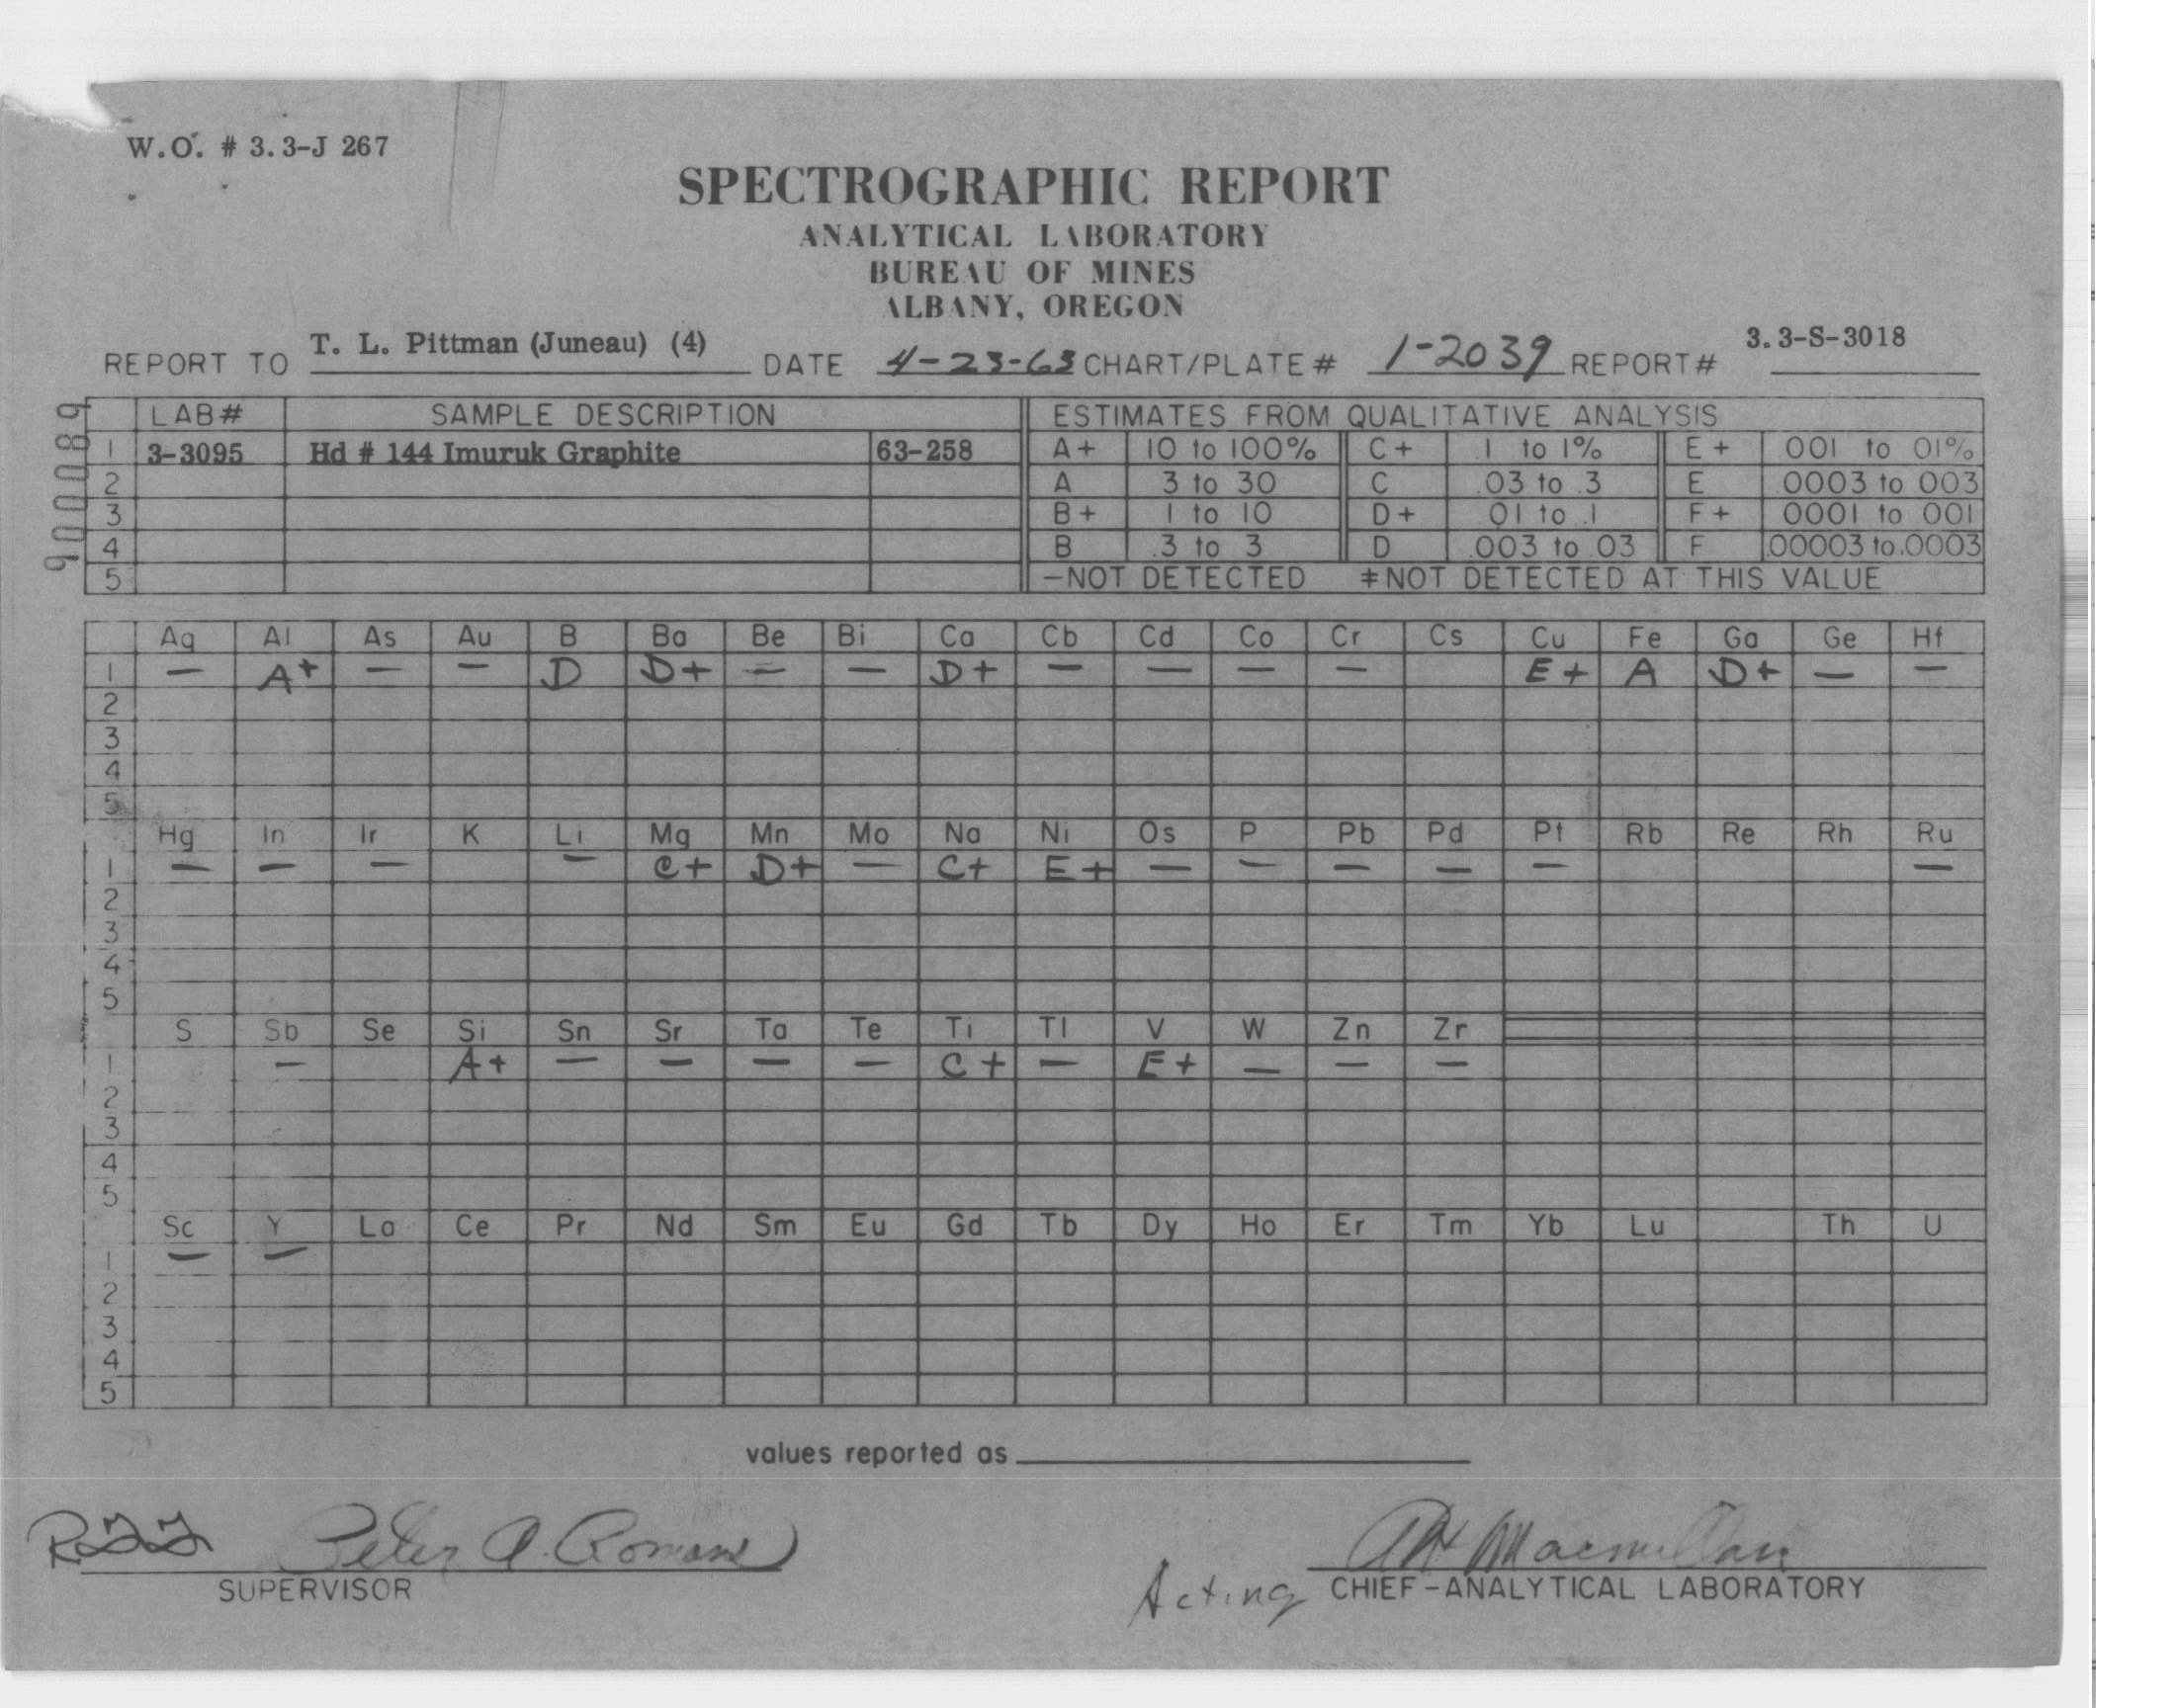 W.O. # 3.3-J 267
SPECTROGRAPHIC REPORT
ANALYTICAL LABORATORY
BUREAU OF MINES
ALBANY, OREGON
REPORT TO T. L. Pittman (Juneau) (4) DATE 4-23-63 CHART/PLATE# 1-2039 REPORT# 3.3-S-3018
900089
LAB# SAMPLE DESCRIPTION ESTIMATES FROM QUALITATIVE ANALYSIS
1 3-3095 Hd # 144 Imuruk Graphite 63-258 A+ 10 to 100% C+ .1 to 1% E+ 001 to 01%
2 A 3 to 30 C .03 to .3 E .0003 to 003
3 B+ 1 to 10 D+ .01 to .1 F+ 0001 to 001
4 B .3 to 3 D .003 to .03 F .00003 to .0003
5 -NOT DETECTED ≠NOT DETECTED AT THIS VALUE
Ag Al As Au B Ba Be Bi Ca Cb Cd Co Cr Cs Cu Fe Ga Ge Hf
1 — A+ — — D D+ — — D+ — — — — E+ A D+ — —
2
3
4
5
Hg In Ir K Li Mg Mn Mo Na Ni Os P Pb Pd Pt Rb Re Rh Ru
1 — — — — C+ D+ — C+ E+ — — — — — —
2
3
4
5
S Sb Se Si Sn Sr Ta Te Ti Tl V W Zn Zr
1 — A+ — — — — C+ — E+ — — —
2
3
4
5
Sc Y La Ce Pr Nd Sm Eu Gd Tb Dy Ho Er Tm Yb Lu Th U
1 — —
2
3
4
5
values reported as
Peter A. Romans
Macmillan
SUPERVISOR
Acting CHIEF-ANALYTICAL LABORATORY